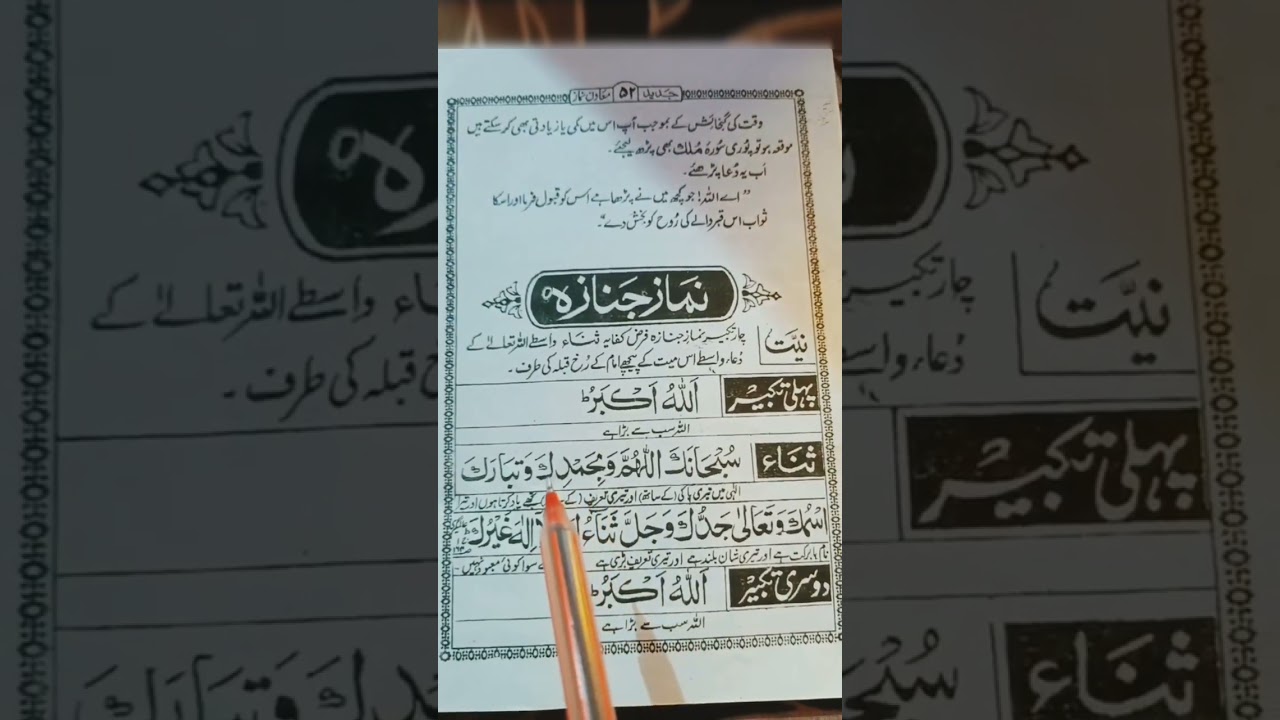 جدید ۵۲ معاون نماز
وقت کی گنجائش کے بموجب آپ اس میں کمی یا زیادتی بھی کر سکتے ہیں
موقعہ ہو تو پوری سُورہ مُلک بھی پڑھ لیجئے۔
اَب یہ دُعا پڑھئے۔
"اے اللہ! جو کچھ میں نے پڑھا ہے اس کو قبول فرما اور اسکا
ثواب اس قبر والے کی رُوح کو بخش دے"
نمازِ جَنازہ
نیّت
چار تکبیر نماز جنازہ فرض کفایہ ثناء واسطے اللہ تعالےٰ کے
دُعاء واسطے اس میت کے پیچھے امام کے رُخ قبلہ کی طرف۔
پہلی تکبیر اَللّٰهُ اَكْبَرُ ط
اللہ سب سے بڑا ہے
ثناء سُبْحَانَكَ اللّٰهُمَّ وَبِحَمْدِكَ وَتَبَارَكَ
الٰہی میں تیری پاکی (کے ساتھ) اور تیری تعریف (کے تجھے یاد کرتا ہوں اور تیرا
اسْمُكَ وَتَعَالٰى جَدُّكَ وَجَلَّ ثَنَاءُ اِلٰهَ غَيْرُكَ
نام بابرکت ہے اور تیری شان بلند ہے اور تیری تعریف بڑی ہے سوا کوئی معبود نہیں۔
دوسری تکبیر اَللّٰهُ اَكْبَرُ ط
اللہ سب سے بڑا ہے